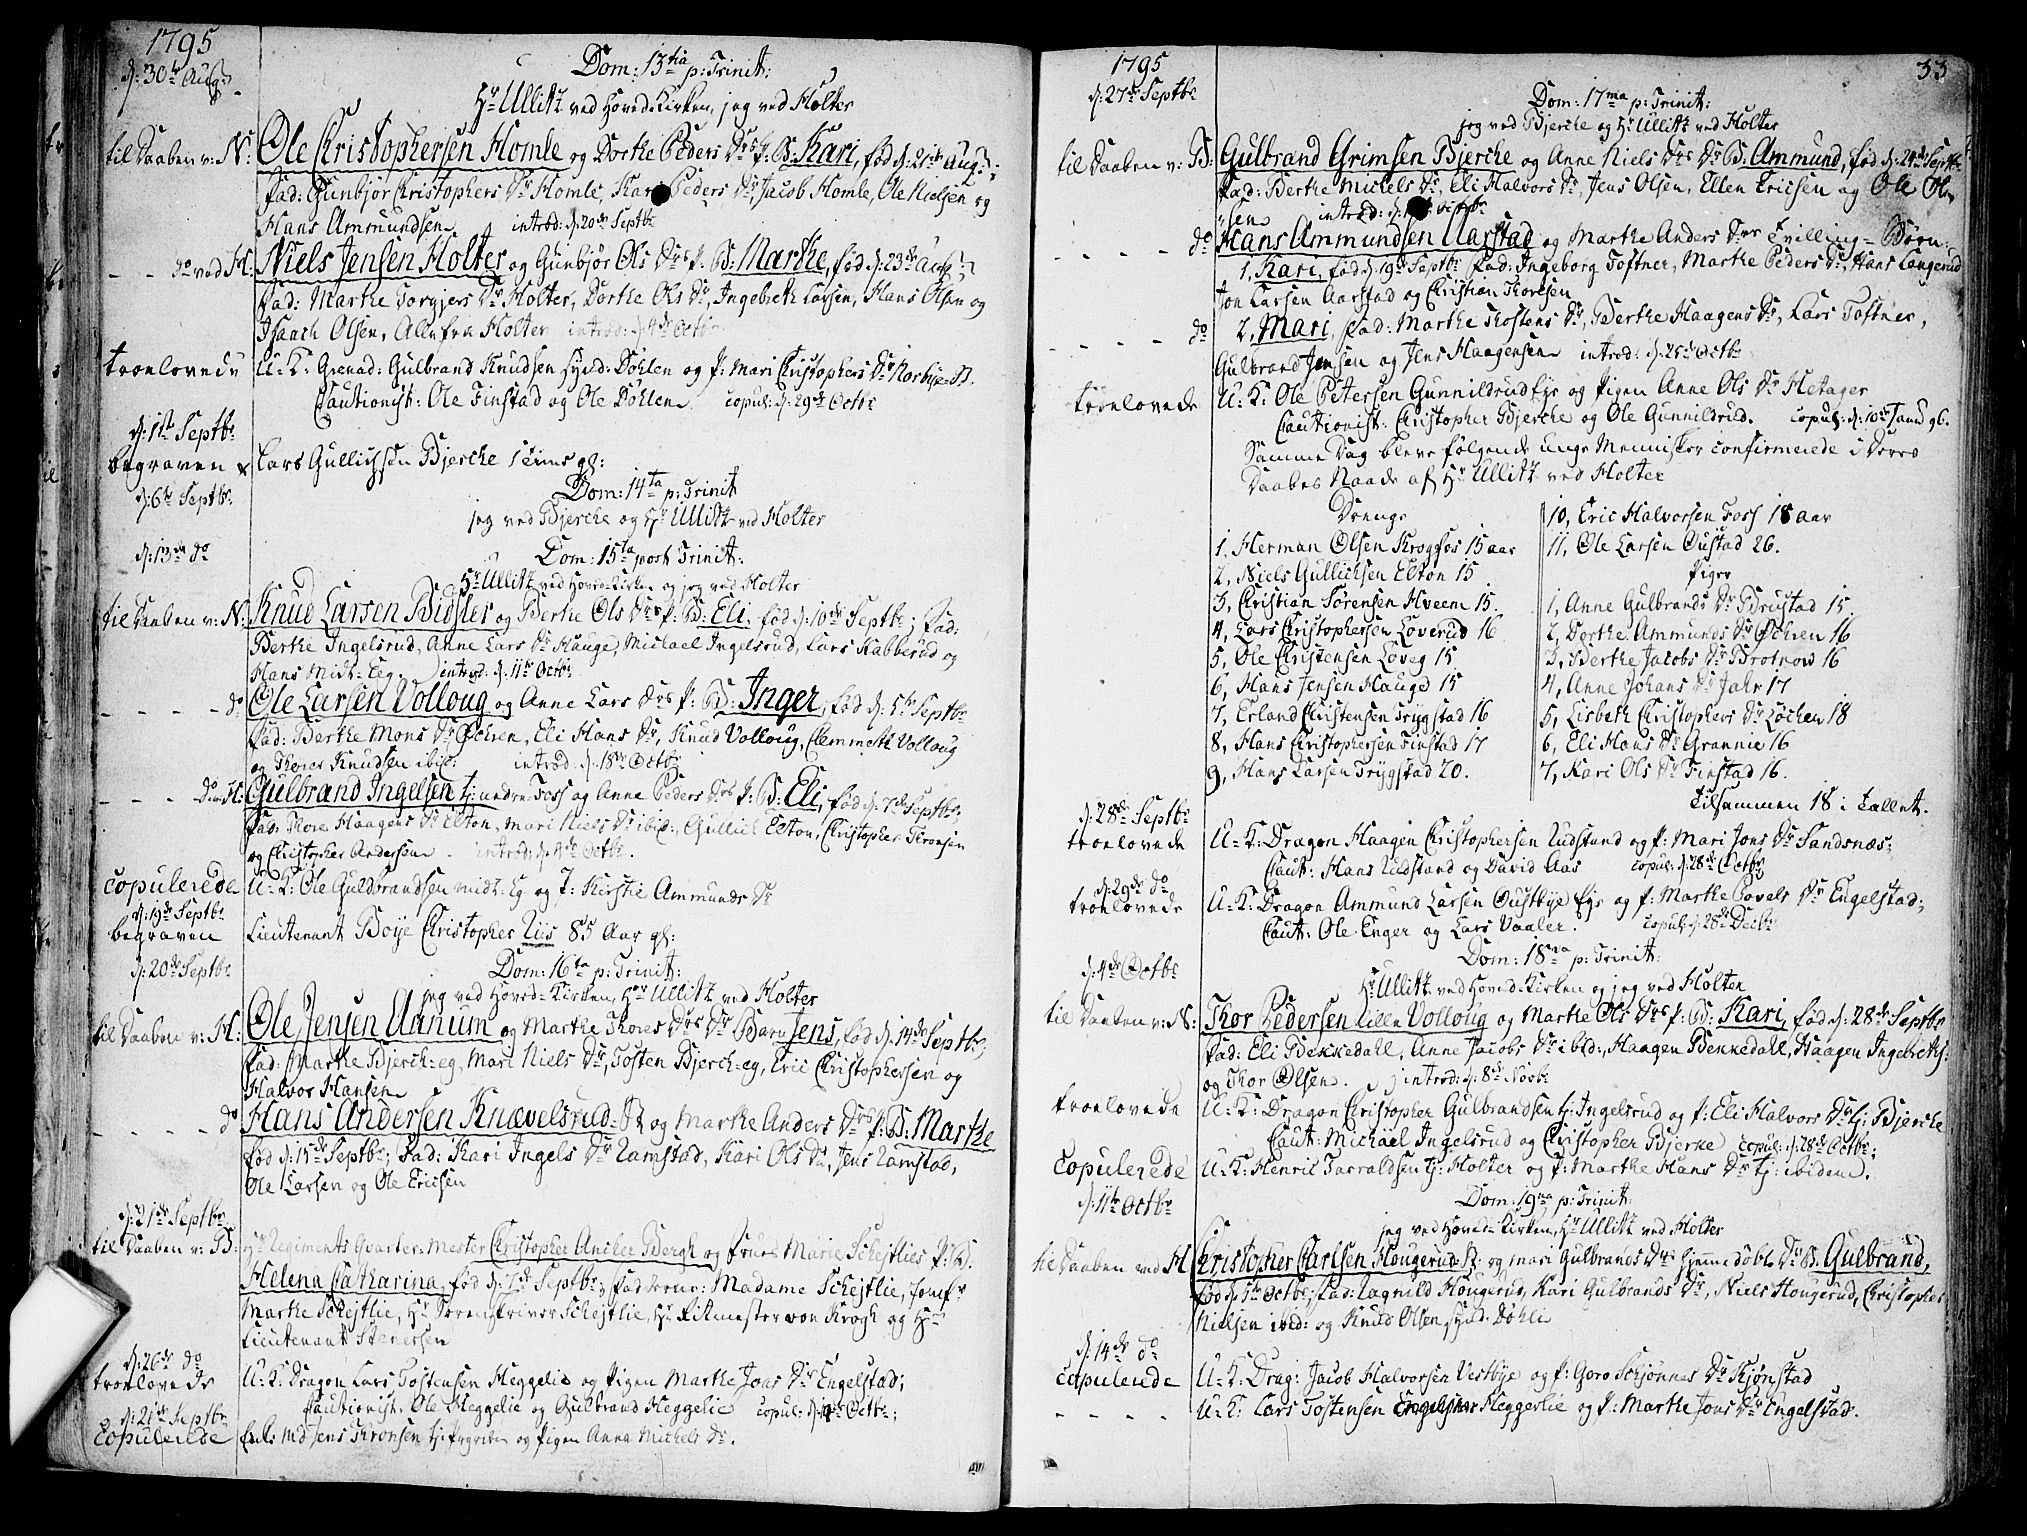 1795
d: 30te Aug:
Dom: 13tia p: Trinit:
Hr Ullitz ved Hoved Kirken, jeg ved Holter
til Daaben v: N: Ole Christophersen Homle og Dorthe Peders Drs P: B: Kari, fød d: 21de Aug:;
Fad: Gunbjør Christophers Dr Homle, Kari Peders Dr, Jacob Homle, Ole Nielsen og
Hans Ammundsen introd: d: 20de Septbr
do ved H: Niels Jensen Holter og Gunbjør Ols Drs P: B: Marthe, fød d: 23de Aug:
Fad: Marthe Torgjers Dr Holter, Dorthe Ols Dr, Ingebreth Larsen, Hans Olsen og
Isaach Olsen, Alle fra Holter introd: d: 4de Octbr
troelovede U: K: Grenad: Gulbrand Knudsen synd: Dohlen og P: Mari Christophers Dr Norbye B.
Cautionist: Ole Finstad og Ole Dohlen copul: d: 29de Octbr
d: 1te Septbr
begraven Lars Gullichsen Bjerche 1 Time gl:
d: 6te Septbr
Dom: 14ta p: Trinit
jeg ved Bjerche og Hr Ullitz ved Holter
d: 13de do
Dom: 15ta post Trinit:
Hr Ullitz ved Hoved Kirken og jeg ved Holter
til Daaben v: N: Knud Larsen Bidsler og Berthe Ols Drs P: B: Eli, fød d: 10de Septbr; Fad:
Berthe Ingelsrud, Anne Lars Dr Hauge, Michael Ingelsrud, Lars Kabberud og
Hans Midt-Eg. introd: d: 11te Octbr
do Ole Larsen Volloug og Anne Lars Drs P: B: Inger, fød d: 5te Septbr
Fad: Berthe Mons Dr Ochren, Eli Hans Dr, Knud Volloug, Clemmeth Volloug
og Thorer Knudsen ibid: introd. d: 18de Octbr
do v: H: Gulbrand Ingelsen tj: nedre Foss og Anne Peders Drs P: B: Eli, fød d: 7de Septbr;
Fad: Thore Haagens Dr Elton, Mari Niels Dr ibid:, Gullich Elton, Christopher Tronsen
og Christopher Andersen introd: d: 4de Octbr.
copulerede U: K: Ole Guldbrandsen midt-Eg og P: Kirstie Ammunds Dr
d: 19de Septbr
begraven Lieutenant Boye Christopher Riis 85 Aar gl:
d: 20de Septbr
Dom: 16ta p: Trinit:
jeg ved Hoved-Kirken, Hr Ullitz ved Holter
til Daaben v: H: Ole Jensen Unnum og Marthe Thores Drs Dr Barn Jens, fød d: 14de Septbr;
Fad: Marthe Bjerch-eg, Mari Niels Dr, Tosten Bjerch-eg, Eric Christophersen og
Halvor Hansen
do Hans Andersen Knævelsrud og Marthe Anders Drs P: B: Marthe
fød d: 15de Septbr; Fad: Kari Ingels Dr Ramstad, Kari Ols Dr, Jens Ramstad,
Ole Larsen og Ole Ericsen
d: 21de Septbr
til Daaben v: B: Hr Regiments Qvarter-Mester Christopher Ancher Bergh og Frues Marie Scheftlies P: B.
Helena Catharina, fød d: 7de Septbr; Fadderne: Madame Scheftlie, Jomfr
Marthe Scheftlie, Hr Sorenskriver Scheftlie, Hr Ritmester von Krogh og Hr
Lieutenant Stenersen
d: 26de do
troelovede U: K: Dragon Lars Tostensen Heggelie og Pigen Marthe Jons Dr Engelstad;
Cautionist: Ole Heggelie og Gulbrand Heggelie copul: d: 14de Octbr;
d: 21de Septbr
Copulerede Jens Thronsen og Pigen Anna Michels Dr.
33
1795
d: 27de Septbr
Dom: 17ma p: Trinit:
jeg ved Bjerche og Hr Ullitz ved Holter
til Daaben v: B: Gulbrand Grimsen Bjerche og Anne Niels Drs Dr B: Ammund, fød d: 24de Septbr
Fad: Berthe Michels Dr, Eli Halvors Dr, Jens Olsen, Ellen Ericsen og Ole Ol-
sen introd: d: Octbr
do Hans Ammundsen Aarstad og Marthe Anders Drs Tvilling-Børn:
1, Kari, fød d: 19de Septbr Fad: Ingeborg Tostner, Marthe Peders Dr, Hans Langerud
Jon Larsen Aarstad og Christian Thoresen
do 2, Mari, Fad: Marthe Thostens Dr, Berthe Haagens Dr, Lars Tostner,
Gulbrand Jensen og Jens Haagensen introd: d: 25de Octbr
troelovede U: K: Ole Petersen Gunnildrud Eye og Pigen Anne Ols Dr Hetager
Cautionist: Christopher Bjerche og Ole Gunnildrud. copul: d: 10de Janu: 96.
Samme Dag bleve følgende unge Mennisker confirmerede i Deres
Daabes Naade af Hr Ullitz ved Holter
Drenge
1, Herman Olsen Krogfos 15 aar
2, Niels Gullichsen Elton 15
3, Christian Sørensen Hveem 15.
4, Lars Christophersen Loverud 16
5, Ole Christensen Loveg 15
6, Hans Jensen Hauge 15
7, Erland Christensen Trygstad 16
8, Hans Christophersen Finstad 17
9, Hans Larsen Trygstad 20.
10, Eric Halvorsen Foss 18 aar
11, Ole Larsen Oustad 26.
Piger
1, Anne Gulbrands Dr Brustad 15.
2, Dorthe Ammunds Dr Ochren 16
3, Berthe Jacobs Dr Brotnow 16
4, Anne Johans Dr Jahr 17
5, Lisbeth Christophers Dr Lochen 18
6, Eli Hans Dr Grannie 16
7, Kari Ols Dr Finstad 16.
Tilsammen 18 i Tallet.
d: 28de Septbr
troelovede U: K: Dragon Haagen Christophersen Rudstand og P: Mari Jons Dr Sandsnæs:
Caut: Hans Rudstand og David Aas copul: d: 28de Octbr
d: 29de do
troelovede U: K: Dragon Ammund Larsen Oustbye Eye og P: Marthe Povels Dr Engelstad;
Caut: Ole Enger og Lars Vaaler. copul: d: 28de Decbr
d: 4de Octbr
Dom: 18va p: Trinit:
Hr Ullitz ved Hoved Kirken og jeg ved Holter
til Daaben v: N: Thor Pedersen Lille Volloug og Marthe Ols Drs P: B: Kari, fød d: 28de Septbr
Fad: Eli Bekkedahl, Anne Jacobs Dr ibid:, Haagen Bekkedahl, Haagen Ingebreths:
og Thor Olsen. introd: d: 8de Novbr
troelovede U: K: Dragon Christopher Gulbrandsen tj: Ingelsrud og P: Eli Halvors Dr tj: Bjerche
Caut: Michael Ingelsrud og Christopher Bjerke copul: d: 28de Octbr;
copulerede U: K: Henric Tarraldsen tj: Holter og P: Marthe Hans Dr tj: ibidem.
d: 11te Octbr
Dom: 19na p: Trinit:
jeg ved Hoved-Kirken, Hr Ullitz ved Holter
til Daaben ved H Christopher Carlsen Hougerud og Mari Gulbrands Drs hjemmedøbt Dr B: Gulbrand,
fød d: 5te Octbr; Fad: Ragnild Hougerud, Kari Gulbrands Dr, Niels Hougerud, Christopher
Nielsen ibid: og Knud Olsen synd: Dohli
d: 14de do
copulerede U: K: Drag: Jacob Halvorsen Vestbye og P: Goro Schjønnes Dr Kjønstad
U: K: Lars Tostensen Heggerlie og P: Marthe Jons Dr Engelstad.